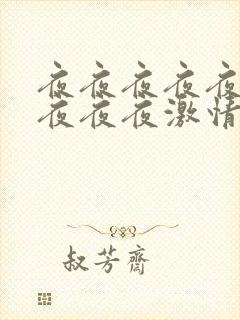 夜夜夜夜夜
夜夜夜激情
叔芳齋